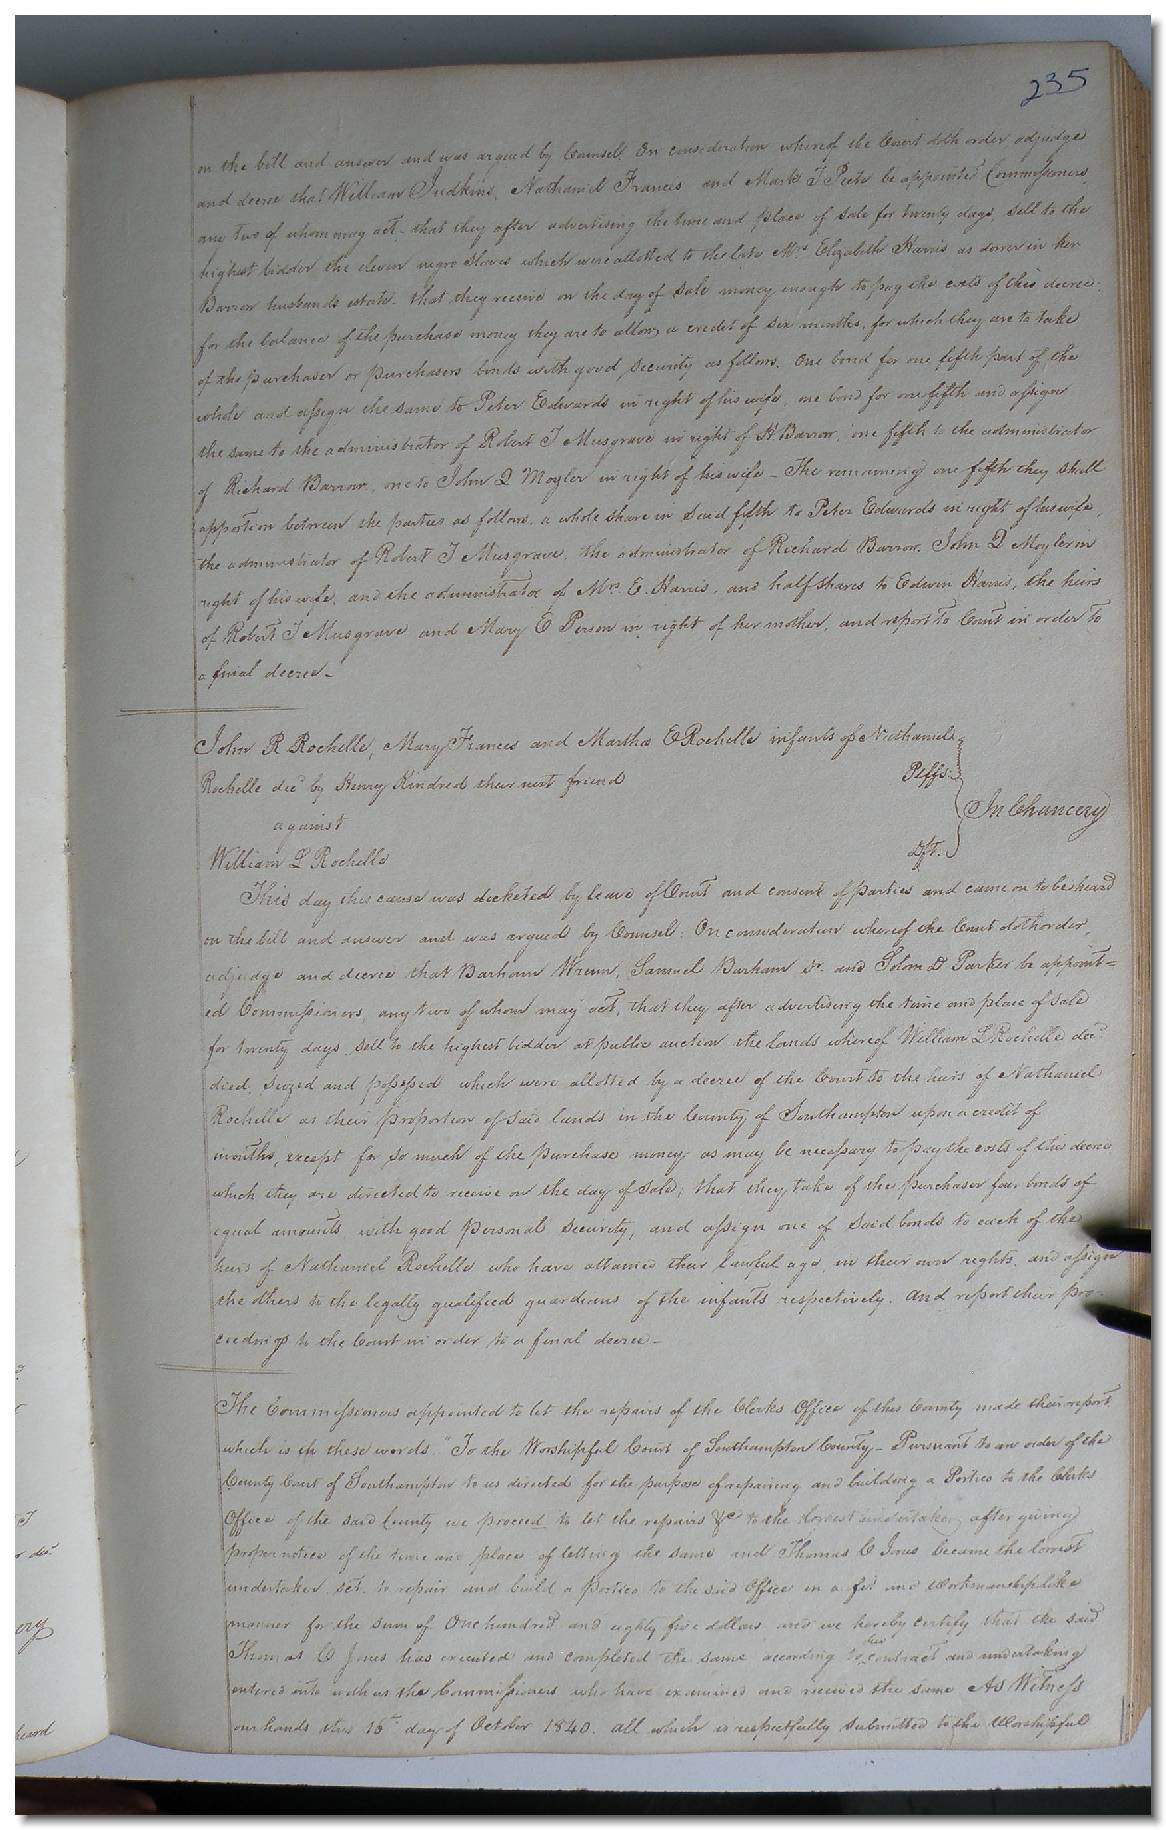 235
on the bill and answer and was argued by Counsel, On consideration whereof the Court doth order adjudge
and decree that William Judkins, Nathaniel Frances and Marks T Peete be appointed Commissioners,
any two of whom may act, that they after advertising the time and place of sale for twenty days, sell to the
highest bidder the eleven negro slaves which were allotted to the late Mrs Elizabeth Harris as dower in her
Barrow husbands estate. that they receive on the day of sale money enough to pay the costs of this decree:
for the balance of the purchase money they are to allow a credit of six months, for which they are to take
of the purchaser or purchasers bonds with good security as follows. One bond for one fifth part of the
whole and assign the same to Peter Edwards in right of his wife, one bond for one fifth and assign
the same to the administrator of Robert T Musgrave in right of H Barrow, one fifth to the administrator
of Richard Barrow, one to John Q Moyler in right of his wife - The remaining one fifth they shall
apportion between the parties as follows, a whole share in said fifth to Peter Edwards in right of his wife,
the administrator of Robert T Musgrave, the administrator of Richard Barrow, John Q Moyler in
right of his wife, and the administrator of Mrs E. Harris, and half shares to Edwin Harris, the heirs
of Robert T Musgrave and Mary E Person in right of her mother, and report to Court in order to
a final decree -
John R Rochelle, Mary Frances and Martha E Rochelle infants of Nathaniel
Rochelle decd by Henry Kindred their next friend Plffs.
against In Chancery
William L Rochelle Dft.
This day this cause was docketed by leave of Court and consent of parties and came on to be heard
on the bill and answer and was argued by Counsel: On consideration whereof the Court doth order,
adjudge and decree that Barham Wrenn, Samuel Barham Sr. and Solom D Parker be appoint=
ed Commissioners, any two of whom may act, that they after advertising the time and place of sale
for twenty days sell to the highest bidder at public auction the lands whereof William L Rochelle decd
died, seized and possessed which were allotted by a decree of the Court to the heirs of Nathaniel
Rochelle as their proportion of said lands in the County of Southampton upon a credit of
months, except for so much of the purchase money as may be necessary to pay the costs of this decree
which they are directed to receive on the day of sale; that they take of the purchaser four bonds of
equal amounts with good personal security, and assign one of said bonds to each of the
heirs of Nathaniel Rochelle who have attained their lawful age, in their own rights, and assign
the others to the legally qualified guardians of the infants respectively. and report their pro-
ceedings to the Court in order to a final decree -
The Commissioners appointed to let the repairs of the Clerks Office of this County made their report
which is in these words "To the Worshipful Court of Southampton County - Pursuant to an order of the
County Court of Southampton to us directed for the purpose of repairing and building a Portico to the Clerks
Office of the said County we proceed to let the repairs &c to the lowest undertaker after giving
proper notice of the time and place of letting the same and Thomas C Jones became the lowest
undertaker, sct. to repair and build a portico to the said Office in a fit and workmanshiplike
manner for the sum of One hundred and eighty five dollars and we hereby certify that the said
Thomas C Jones has executed and completed the same according to his contract and undertaking
entered into with us the Commissioners who have examined and received the same As Witness
our hands this 16th day of October 1840. all which is respectfully submitted to the Worshipful